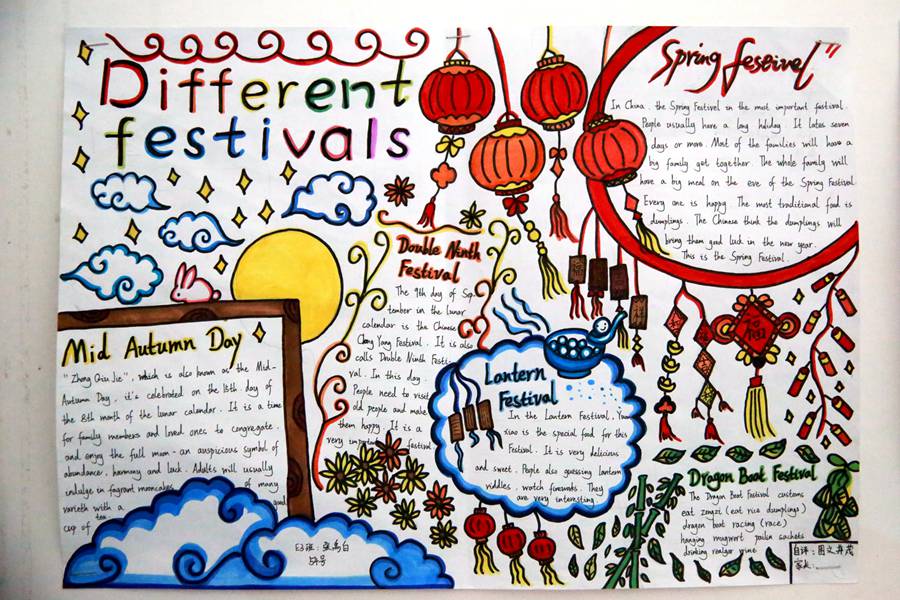 Different
festivals
Spring festivel
In China, the Spring Festivel is the most important festival.
People usually have a long holiday. It lates seven
days or more. Most of the families will have a
big family get together. The whole family will
have a big meal on the eve of the Spring Festival
Every one is happy. The most traditional food is
dumplings. The Chinese think the dumplings will
bring them good luck in the new year.
This is the Spring Festival.
福
Double Ninth
Festival
The 9th day of Sep-
tember in the lunar
calendar is the Chinese
Chong Yang Festival. It is also
calls Double Ninth Festi-
val. In this day.
People need to visit
old people and make
them happy. It is a
very important festival.
Mid Autumn Day
"Zhong Qiu Jie", which is also known as the Mid-
Autumn Day, it's celebrated on the 15th day of
the 8th month of the lunar calendar. It is a time
for family members and loved ones to congregate.
and enjoy the full moon - an auspicious symbol of
abundance, harmony and luck. Adults will usually
indulge in fragrant mooncakes of many
varieth with a good
cup of tea
Lantern
Festival
In the Lantern Festival, Yuan
xiao is the special food for this
Festival. It is very delicious
and sweet. People also guessing lantern
riddles, watch fireworks. They
are very interesting.
Dragon Boat Festival
The Dragon Boat Festival customs
eat zongzi (eat rice dumplings)
dragon boat racing (race)
hanging mugwort sachets
drinking realgar wine
班:张禹白
号
自评:图文并茂
家长: